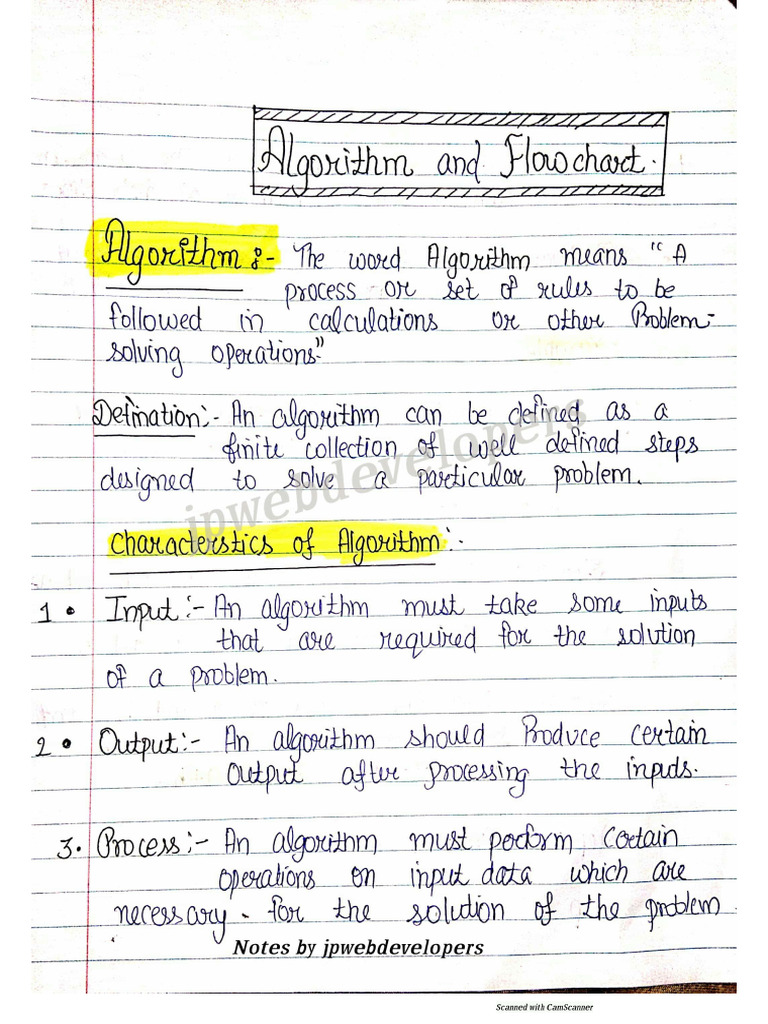 Algorithm and Flowchart.
Algorithm :- The word Algorithm means " A
process or set of rules to be
followed in calculations or other Problem-
solving operations"
Defination:- An algorithm can be defined as a
finite collection of well defined steps
designed to solve a particular problem.
jpwebdevelopers
Characterstics of Algorithm :-
1. Input :- An algorithm must take some inputs
that are required for the solution
of a problem.
2. Output :- An algorithm should Produce certain
Output after processing the inputs.
3. Process :- An algorithm must perform certain
operations on input data which are
necessary - for the solution of the problem
Notes by jpwebdevelopers
Scanned with CamScanner